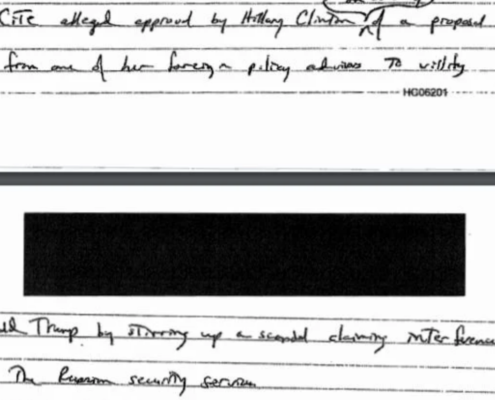 Cite alleged approval by Hillary Clinton of a proposal
from one of her foreign policy advisors to vilify
HG06201
ald Trump by stirring up a scandal claiming interference
The Russian security services